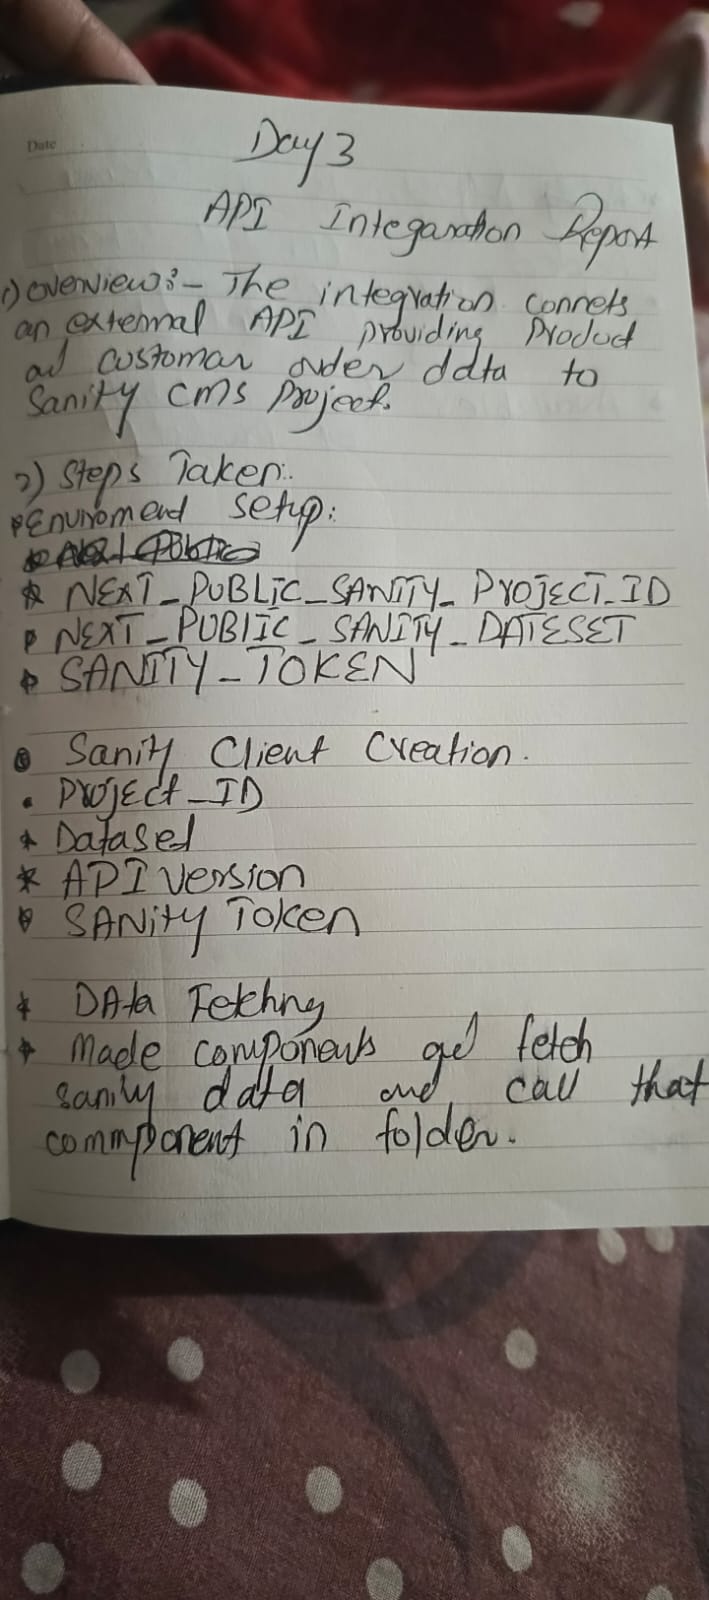 Date
Day 3
API Integaration Report
1) overview:- The integration connets
an external API providing Product
ad customar order data to
Sanity CMS Project.
2) Steps Taken:.
Enviroment setup:
NEXT_PUBLIC_SANITY_PROJECT_ID
NEXT_PUBLIC_SANITY_DATESET
SANITY_TOKEN
Sanity Client Creation.
PROJECT_ID
Dataset
API Version
SANITY Token
DAta Fetching
Made components and fetch
sanity data and call that
commponent in folder.